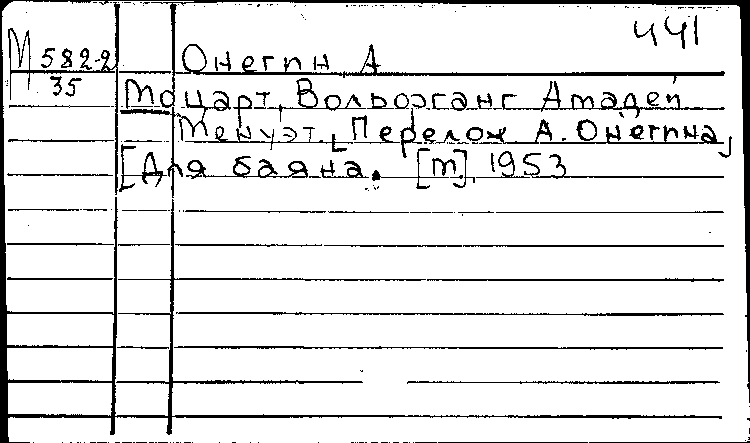 441
М 582-2
35
Онегин А
Моцарт, Вольфганг Амадей
Менуэт. [Перелож А. Онегина]
[Для баяна. [М], 1953